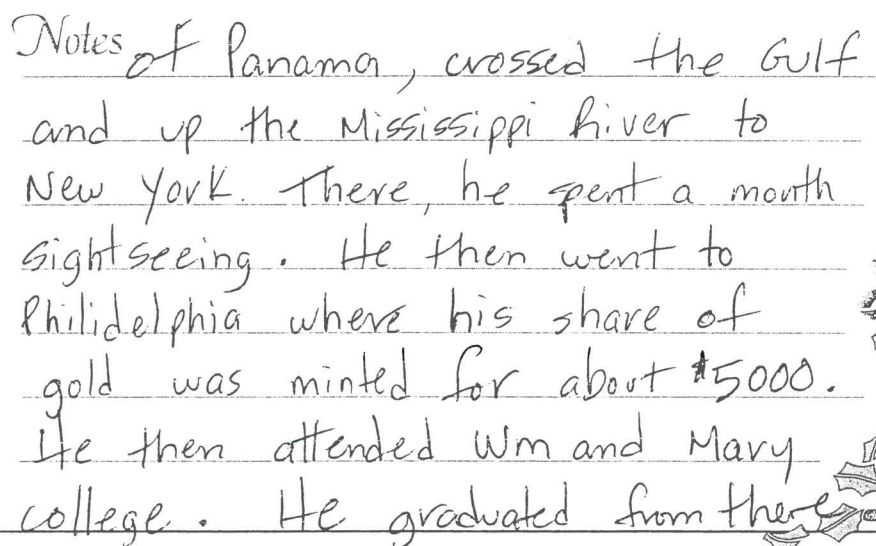 Notes of Panama, crossed the Gulf
and up the Mississippi River to
New York. There, he spent a month
sightseeing. He then went to
Philidelphia where his share of
gold was minted for about $5000.
He then attended Wm and Mary
college. He graduated from there